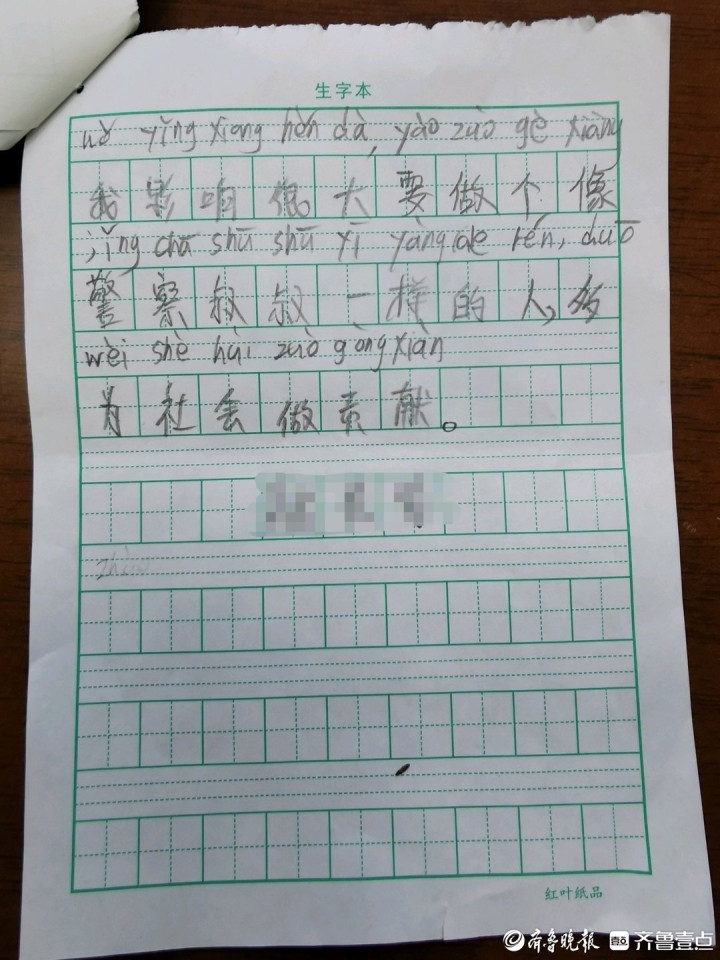 生字本
uǒ yǐng xiang hěn dà, yào zuò gè xiàng
我影响很大要做个像
jǐng chá shū shū yī yàng de rén, duō
警察叔叔一样的人,多
wèi shè hùi zuò gòng xiàn
为社会做贡献。
红叶纸品
齐鲁晚报 壹点 齐鲁壹点